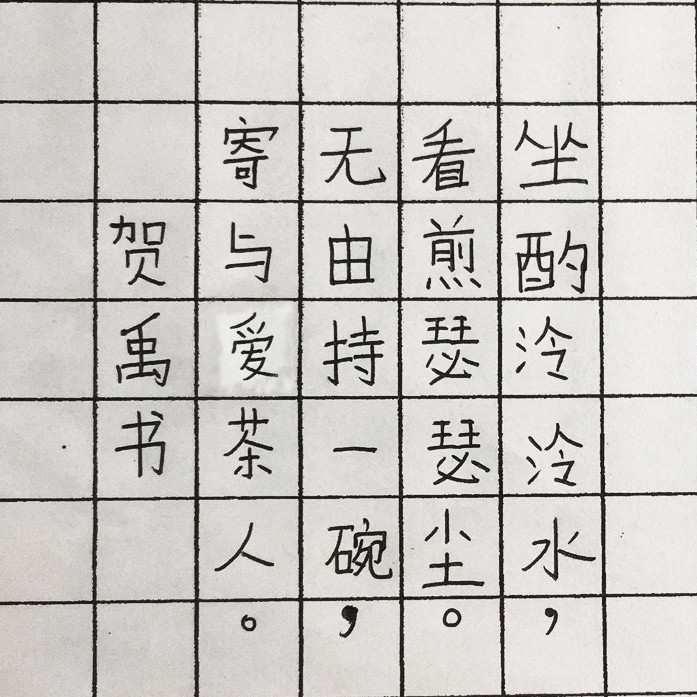 坐酌泠泠水，
看煎瑟瑟尘。
无由持一碗，
寄与爱茶人。
贺禹书